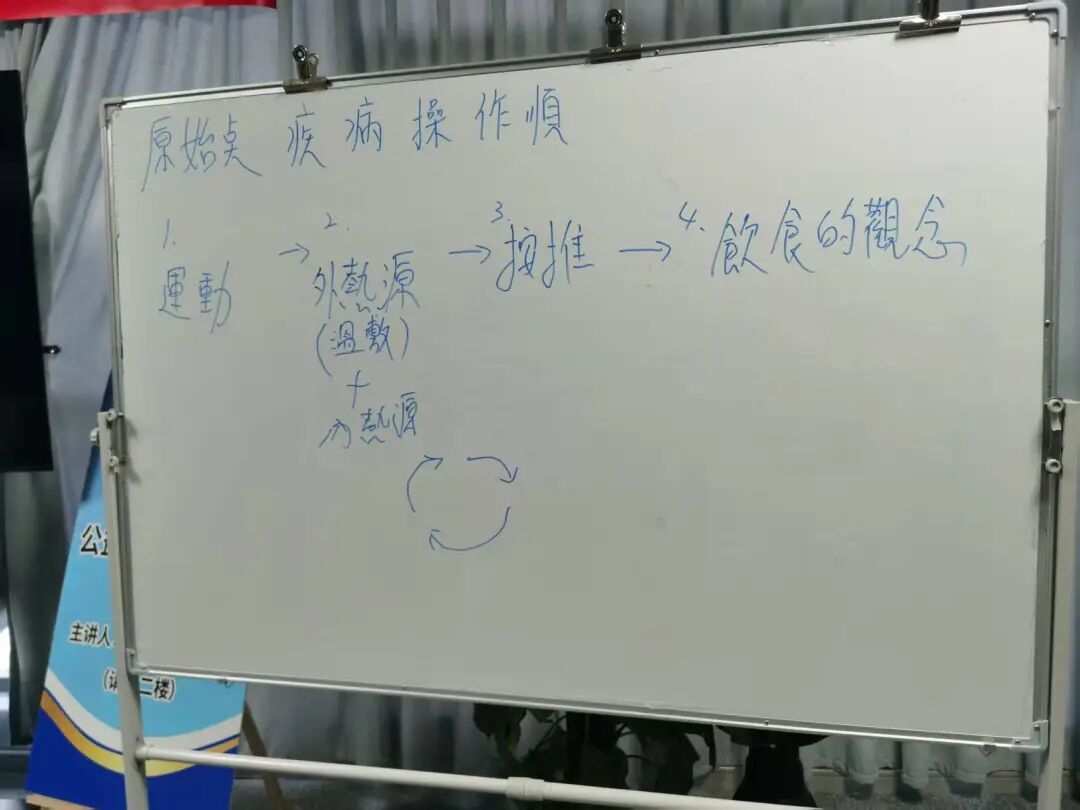 原始点 疾病操作順
1. 運動 → 2. 外熱源 → 3. 按推 → 4. 飲食的觀念
(溫敷)
+
內熱源
公
主讲人
二楼)